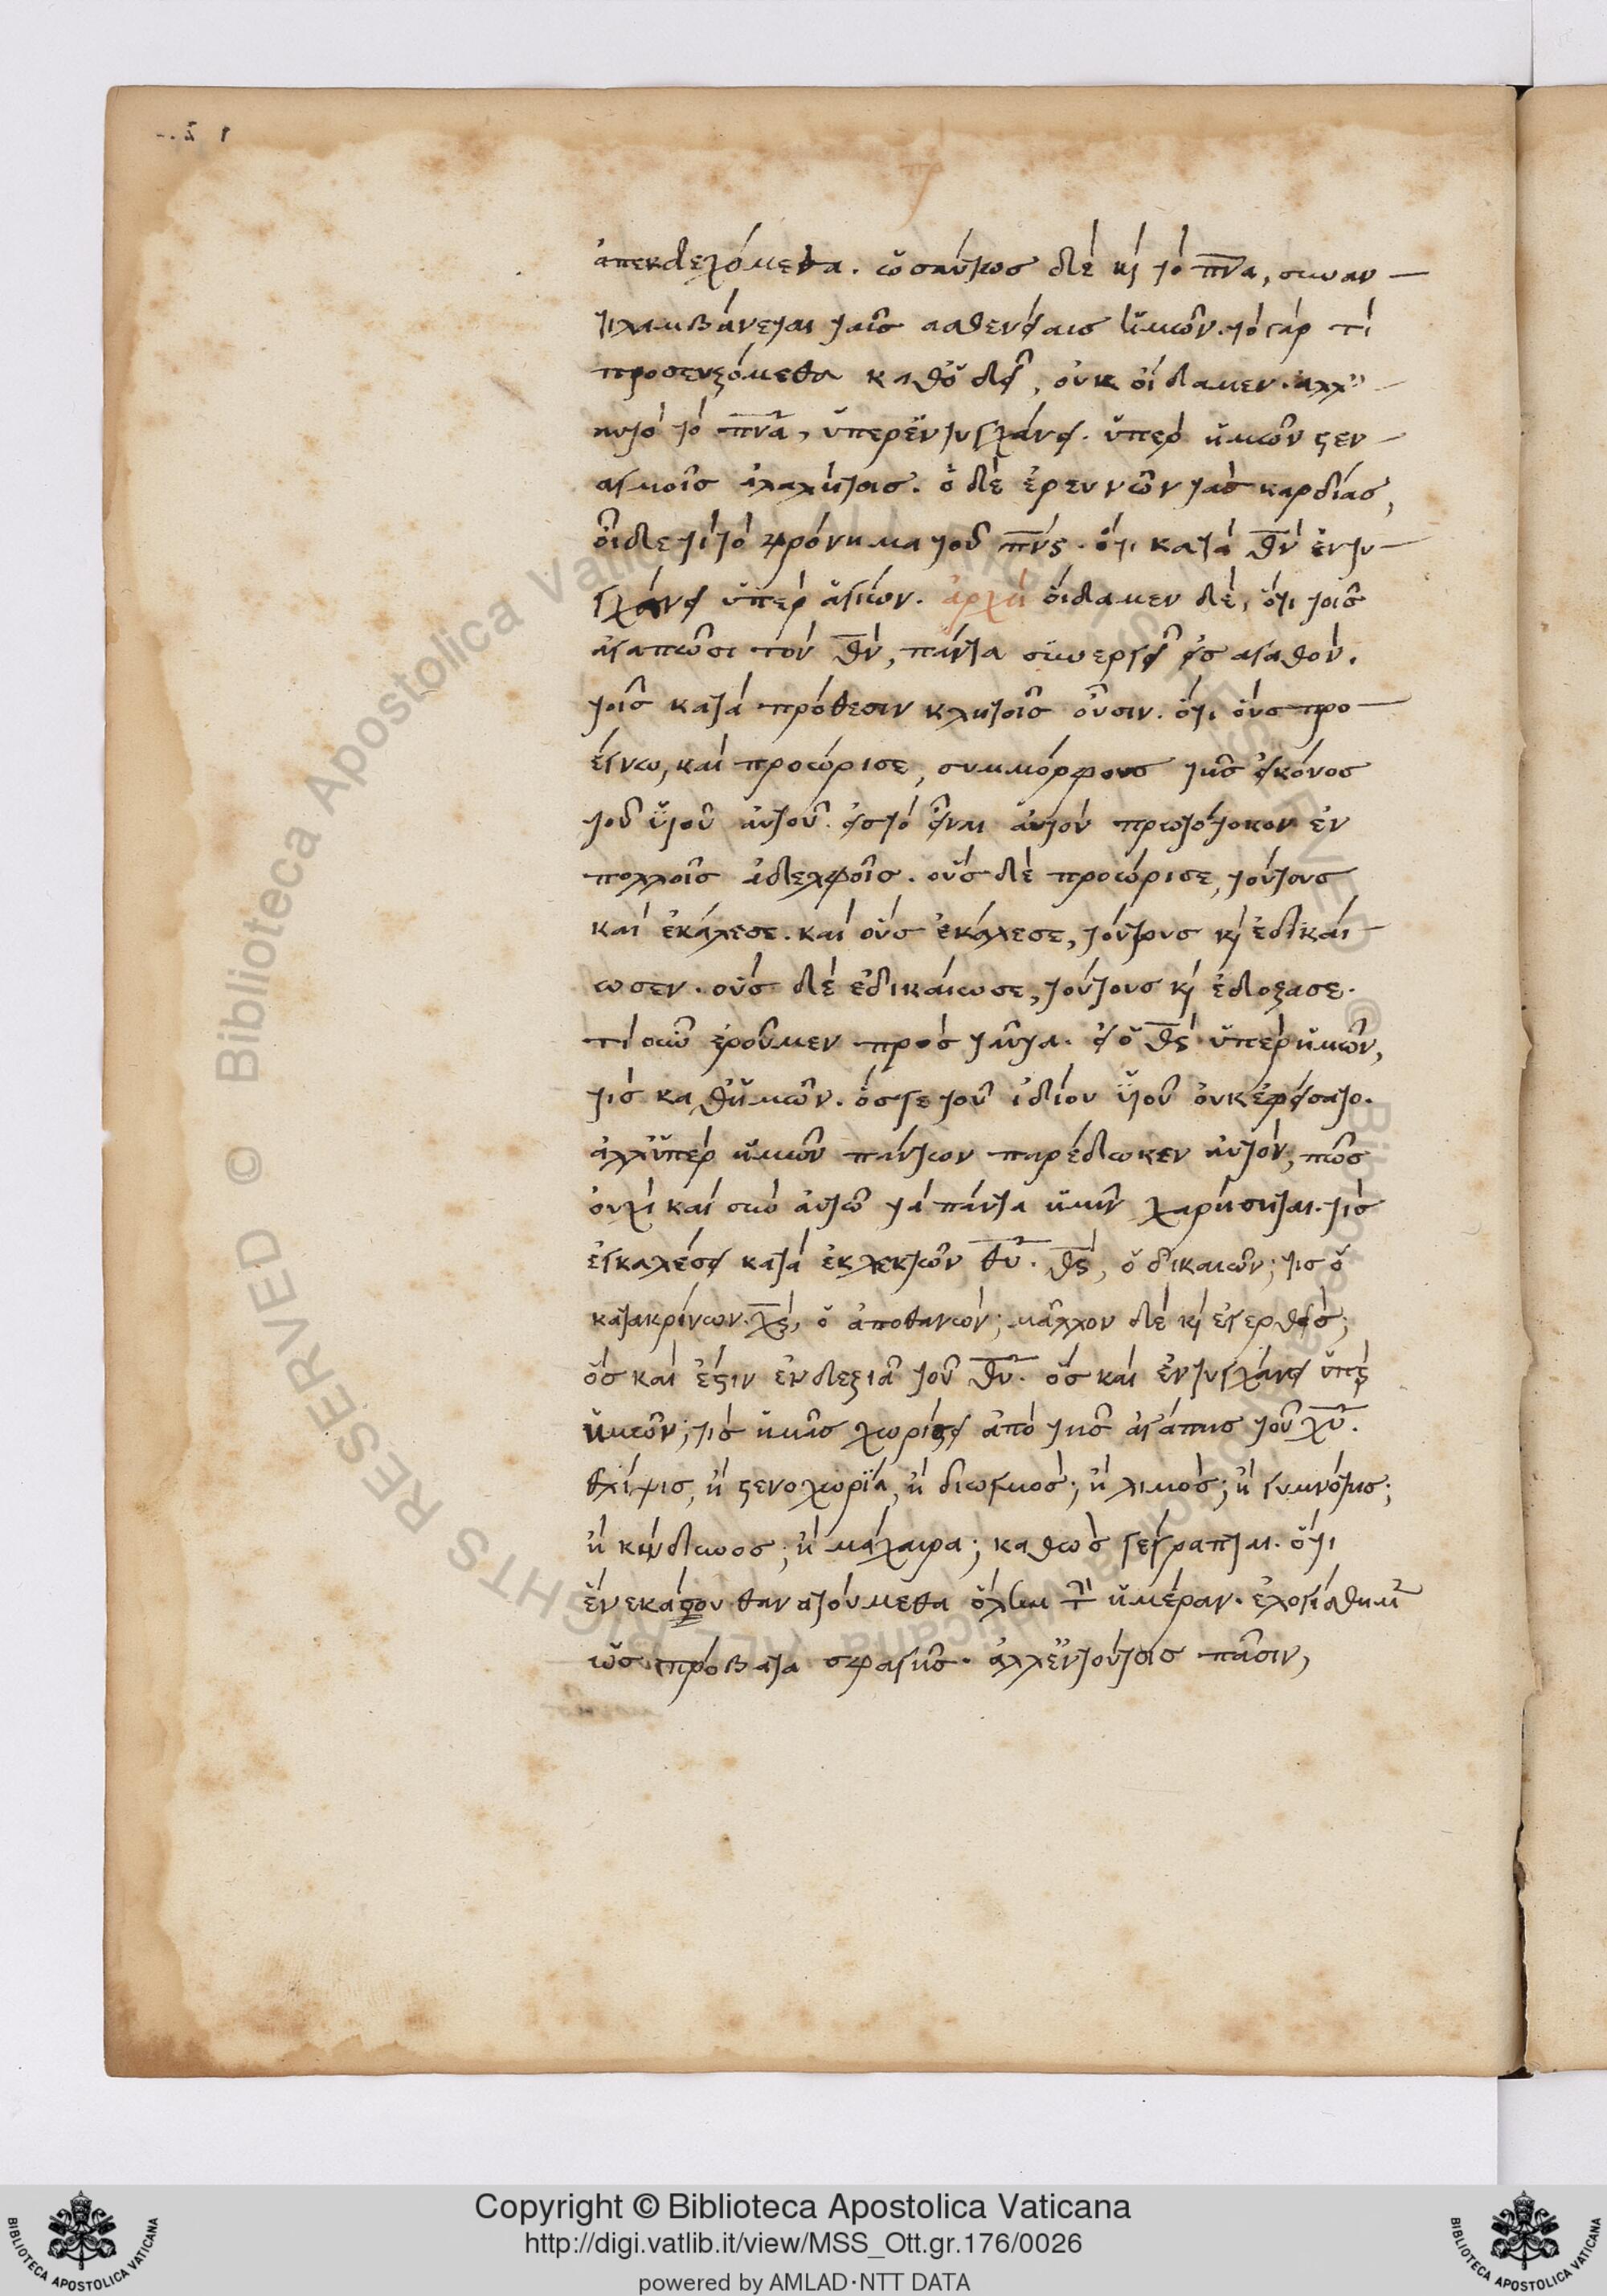 ἀπεκδεχόμεθα. ὡσαύτως δὲ κὶ τὸ πνα, συναν
τιλαμβάνεται ταῖς ἀσθενείαις ἡμῶν. τὸ γὰρ τί
προσευξόμεθα καθὸ δεῖ, οὐκ οἴδαμεν. ἀλλ'
αὐτὸ τὸ πνα, ὑπερεντυγχάνει. ὑπὲρ ἡμῶν στεν
αγμοῖς ἀλαλήτοις. ὁ δὲ ἐρευνῶν τὰς καρδίας,
οἶδε τί τὸ φρόνημα τοῦ πνς. ὅτι κατὰ θν ἐντυ
γχάνει ὑπὲρ ἁγίων. ἀρχὴ οἴδαμεν δὲ, ὅτι τοῖς
ἀγαπῶσι τὸν θν, πάντα συνεργεῖ εἰς ἀγαθόν.
τοῖς κατὰ πρόθεσιν κλητοῖς οὖσιν. ὅτι οὓς προ
έγνω, καὶ προώρισε, συμμόρφους τῆς εἰκόνος
τοῦ ὑιοῦ αὐτοῦ. εἰς τὸ εἶναι αὐτὸν πρωτότοκον ἐν
πολλοῖς ἀδελφοῖς. οὓς δὲ προώρισε, τούτους
καὶ ἐκάλεσε. καὶ οὓς ἐκάλεσε, τούτους κὶ ἐδικαί
ωσεν. οὓς δὲ ἐδικαίωσε, τούτους κὶ ἐδόξασε.
τί οὖν ἐροῦμεν πρὸς ταῦτα. εἰ ὁ θς ὑπὲρ ἡμῶν,
τίς καθ' ἡμῶν. ὅς γε τοῦ ἰδίου ὑιοῦ οὐκ ἐφείσατο.
ἀλλ' ὑπὲρ ἡμῶν πάντων παρέδωκεν αὐτόν, πῶς
οὐχὶ καὶ σὺν αὐτῷ τὰ πάντα ἡμῖν χαρήσηται. τίς
ἐγκαλέσει κατὰ ἐκλεκτῶν θυ. θς, ὁ δικαιῶν; τίς ὁ
κατακρίνων. χς, ὁ ἀποθανών; μᾶλλον δὲ κὶ ἐγερθείς;
ὃς καὶ ἔστιν ἐν δεξιᾷ τοῦ θυ. ὃς καὶ ἐντυγχάνει ὑπὲρ
ἡμῶν; τίς ἡμᾶς χωρίσει ἀπὸ τῆς ἀγάπης τοῦ χυ.
θλίψις, ἢ στενοχωρϊα, ἢ διωγμός; ἢ λιμός; ἢ γυμνότης;
ἢ κίνδυνος; ἢ μάχαιρα; καθὼς γέγραπται. ὅτι
ἕνεκά σου θανατούμεθα ὅλην τ ἡμέραν. ἐλογίσθημ
ὡς πρόβατα σφαγῆς. ἀλλ' ἐν τούτοις πᾶσιν,
Copyright © Biblioteca Apostolica Vaticana
http://digi.vatlib.it/view/MSS_Ott.gr.176/0026
powered by AMLAD·NTT DATA